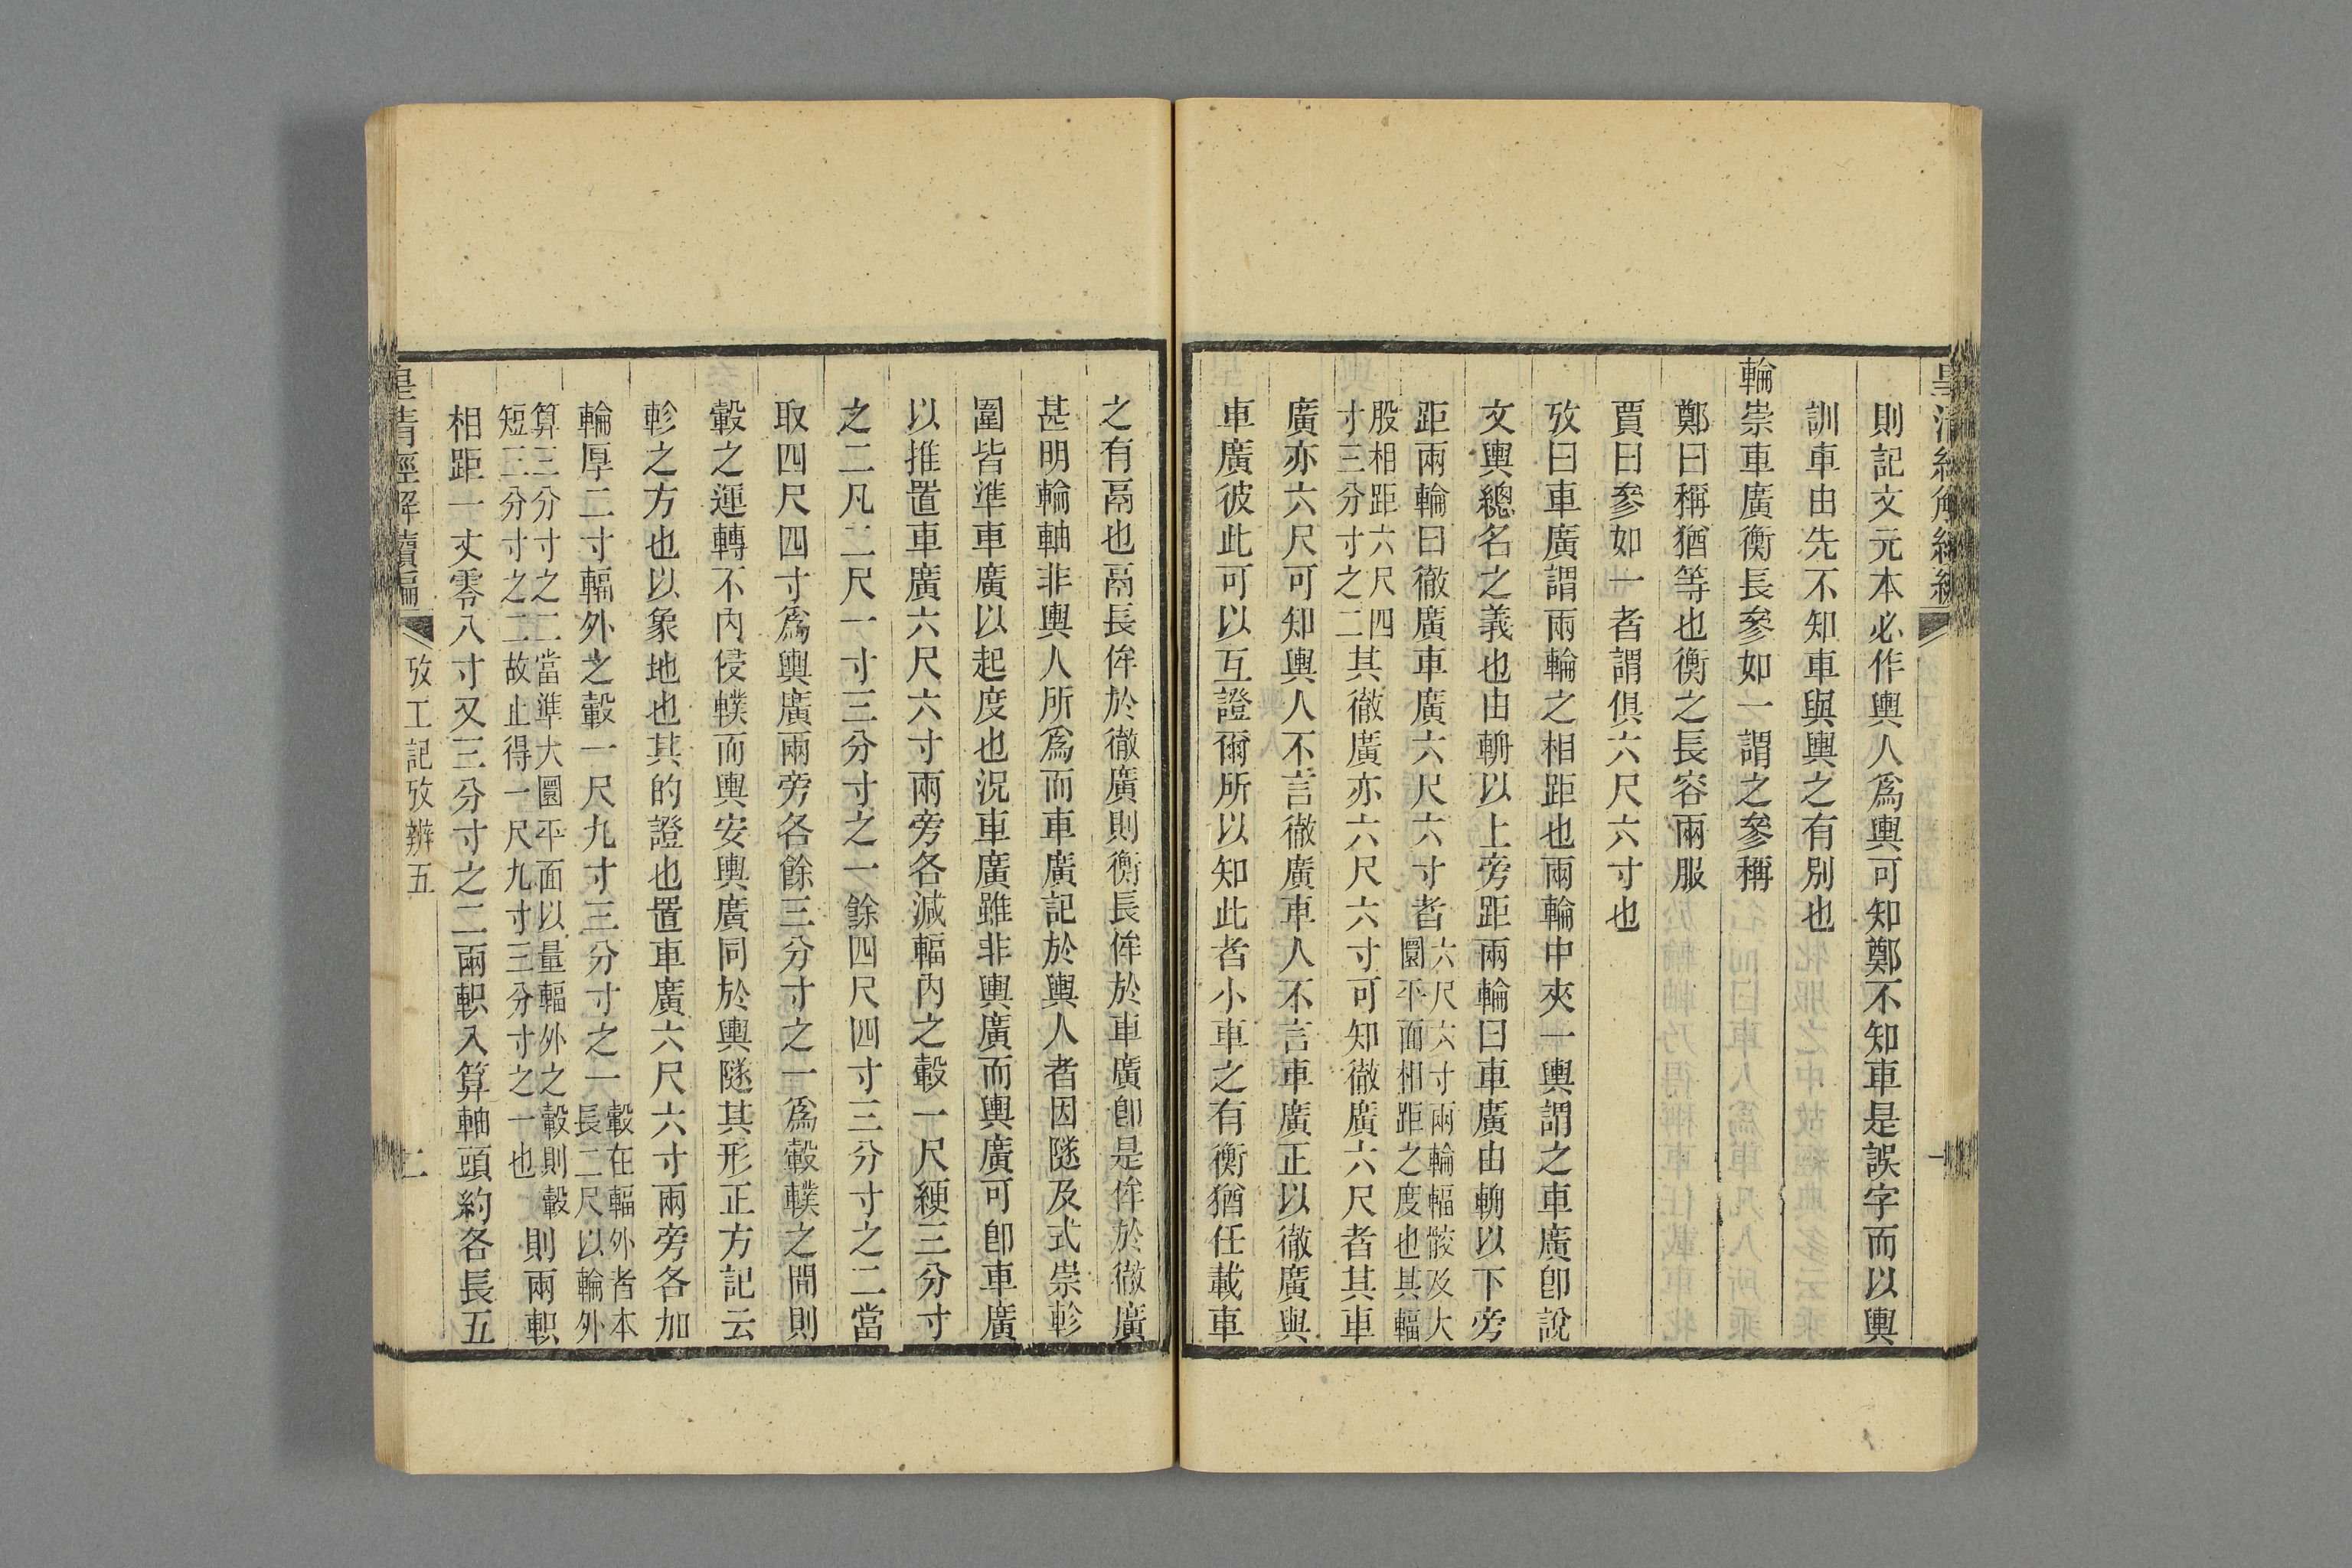 則記文元本必作輿人爲輿可知鄭不知車是誤字而以輿
訓車由先不知車與輿之有別也
輪崇車廣衡長參如一謂之參稱
鄭曰稱猶等也衡之長容兩服
賈曰參如一者謂俱六尺六寸也
攷曰車廣謂兩輪之相距也兩輪中夾一輿謂之車廣卽說
文輿總名之義也由輈以上旁距兩輪曰車廣由輈以下旁
距兩輪曰徹廣車廣六尺六寸者六尺六寸兩輪輻骹及大
圜平面相距之度也其輻
股相距六尺四
寸三分寸之二其徹廣亦六尺六寸可知徹廣六尺者其車
廣亦六尺可知輿人不言徹廣車人不言車廣正以徹廣與
車廣彼此可以互證爾所以知此者小車之有衡猶任載車
之有鬲也鬲長侔於徹廣則衡長侔於車廣卽是侔於徹廣
甚明輪軸非輿人所爲而車廣記於輿人者因隧及式崇軫
圍皆準車廣以起度也況車廣雖非輿廣而輿廣可卽車廣
以推置車廣六尺六寸兩旁各減輻內之轂一尺綆三分寸
之二凡二尺一寸三分寸之一餘四尺四寸三分寸之二當
取四尺四寸爲輿廣兩旁各餘三分寸之一爲轂轐之閒則
轂之運轉不內侵轐而輿安輿廣同於輿隧其形正方記云
軫之方也以象地也其的證也置車廣六尺六寸兩旁各加
輪厚二寸輻外之轂一尺九寸三分寸之一轂在輻外者本
長二尺以輪外
算三分寸之二當準大圜平面以量輻外之轂則轂
短三分寸之二故止得一尺九寸三分寸之一也則兩軹
相距一丈零八寸又三分寸之二兩軹入算軸頭約各長五
皇清經解續編
攷工記攷辨五
二